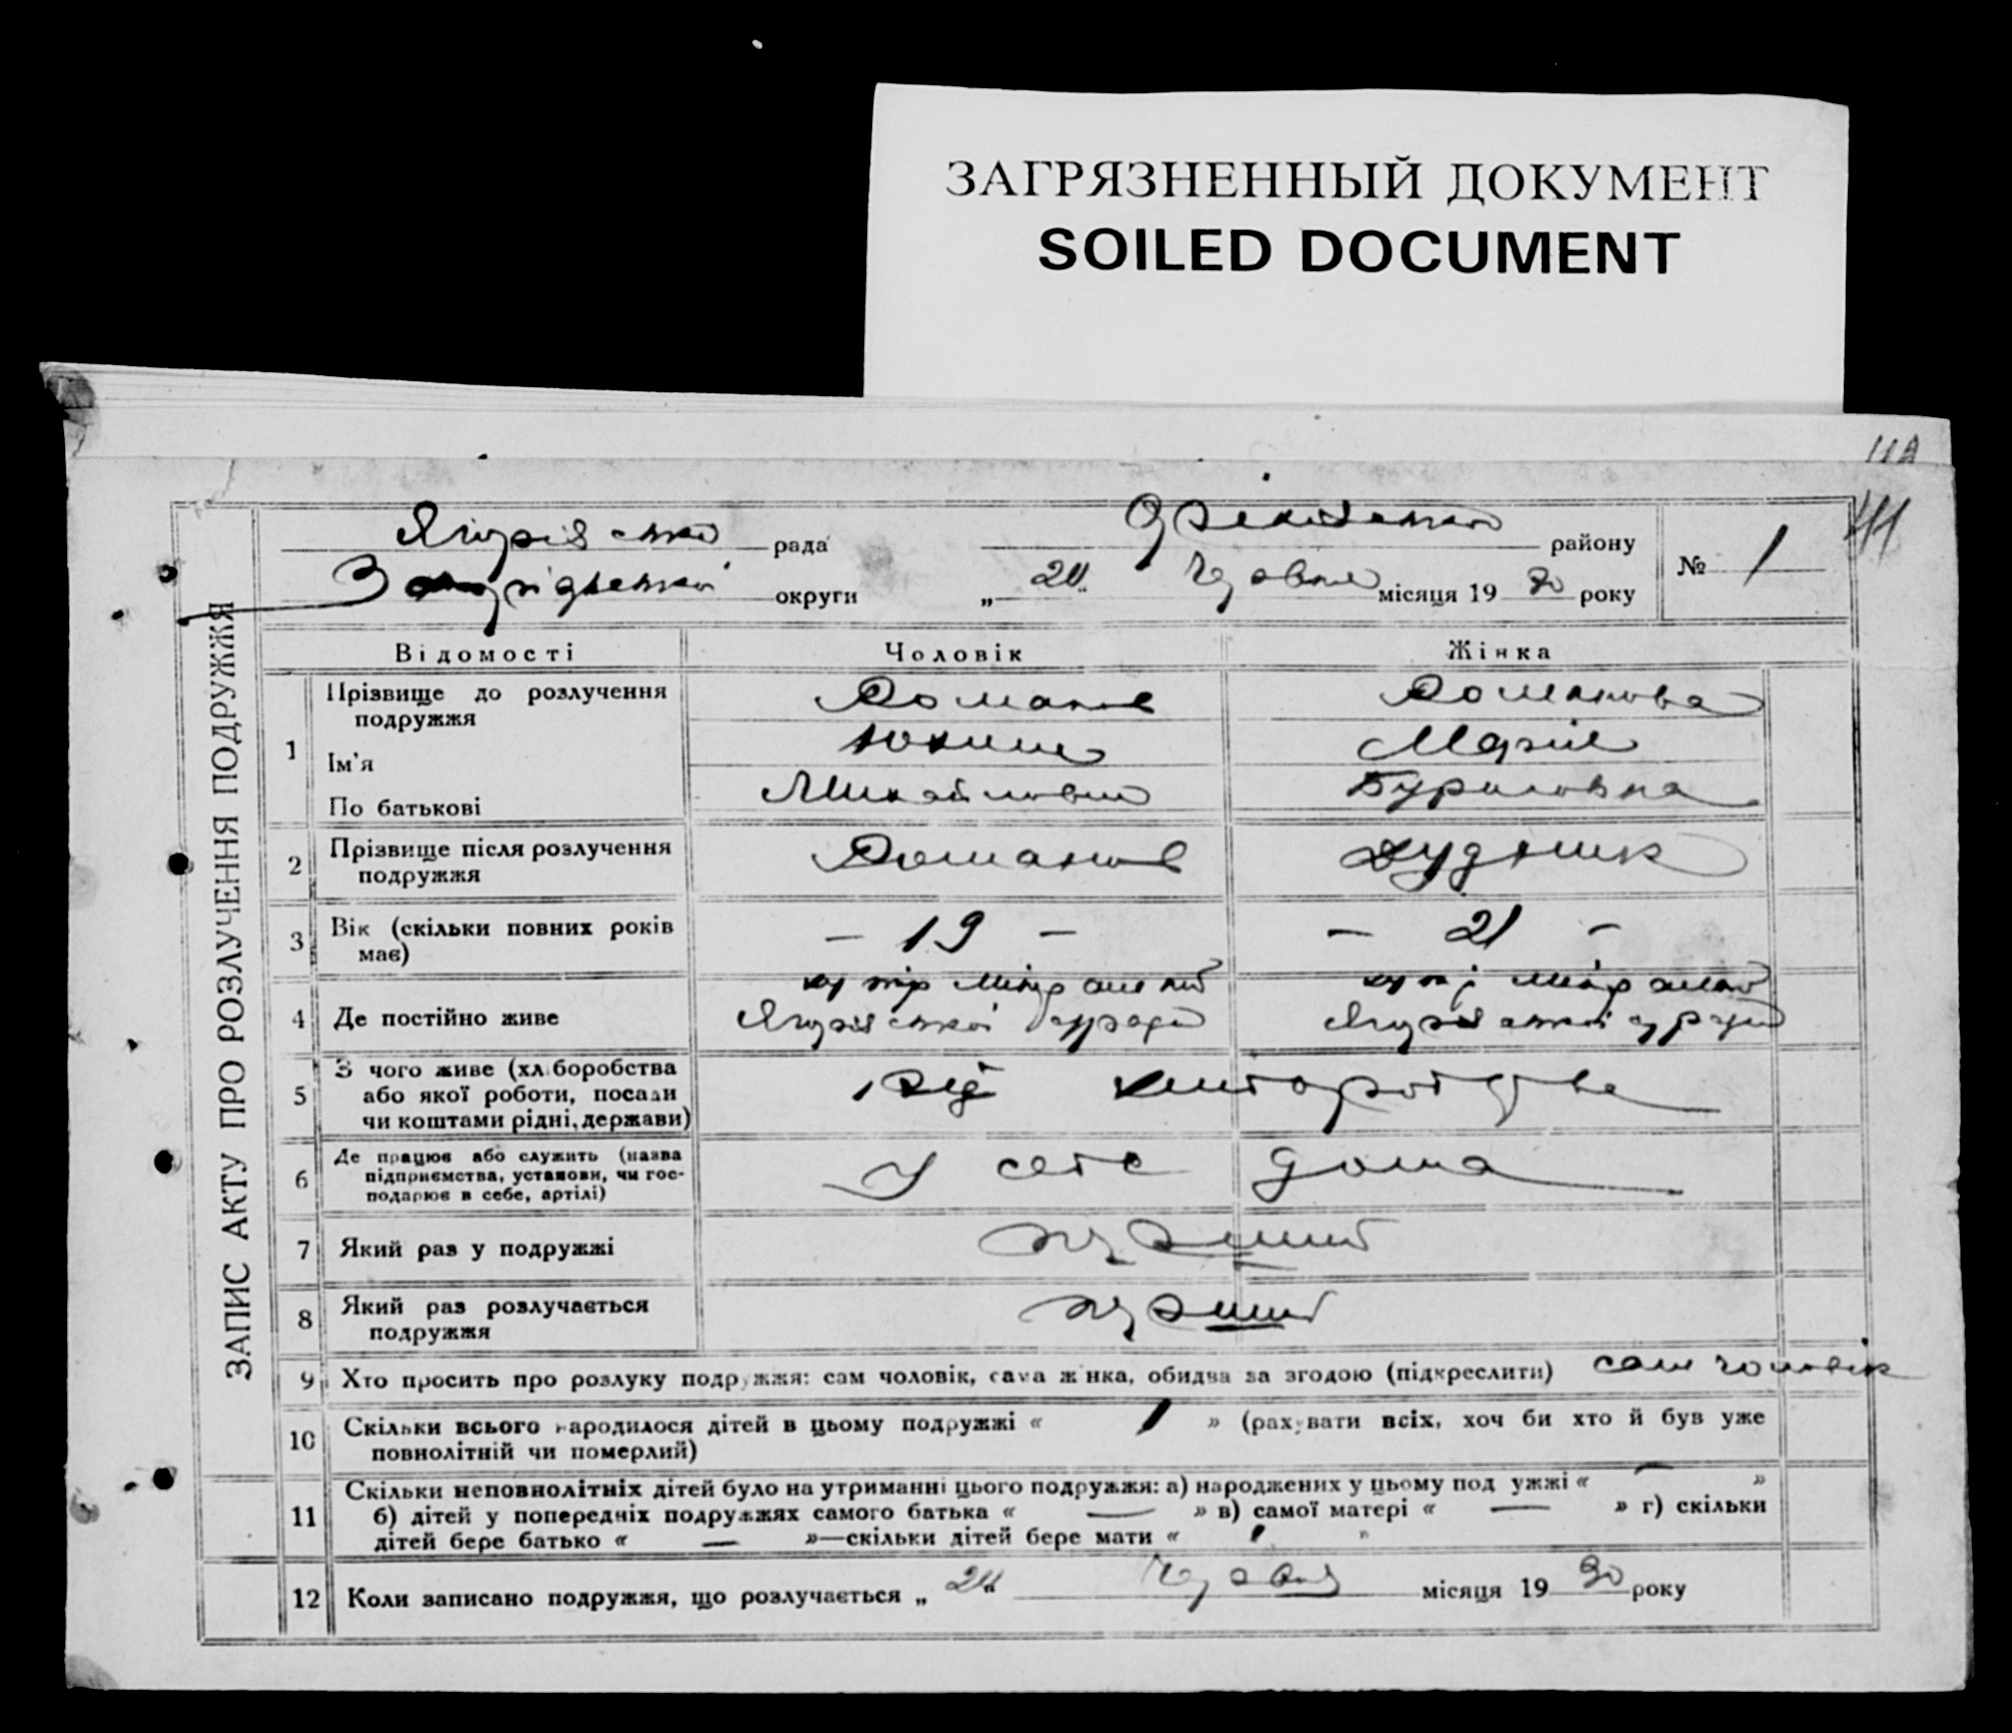 ЗАГРЯЗНЕННЫЙ ДОКУМЕНТ
SOILED DOCUMENT
ЗАПИС АКТУ ПРО РОЗЛУЧЕННЯ ПОДРУЖЖЯ
рада району № 1
округи „ місяця 19 30 року
Відомості Чоловік Жінка
1 Прізвище до розлучення подружжя Романов Романова
Ім'я Марія
По батькові Михайлович
2 Прізвище після розлучення
подружжя Романов Дудник
3 Вік (скільки повних років
має) – 19 – – 21 –
4 Де постійно живе хутір хутір
5 З чого живе (хліборобства
або якої роботи, посади
чи коштами рідні, держави) від хліборобства
6 Де працює або служить (назва
підприємства, установи, чи гос-
подарює в себе, артілі) у себе дома
7 Який раз у подружжі перший
8 Який раз розлучається
подружжя перший
9 Хто просить про розлуку подружжя: сам чоловік, сама жінка, обидва за згодою (підкреслити) сам чоловік
10 Скільки всього народилося дітей в цьому подружжі « 1 » (рахувати всіх, хоч би хто й був уже
повнолітній чи померлий)
11 Скільки неповнолітніх дітей було на утриманні цього подружжя: а) народжених у цьому подружжі « — »
б) дітей у попередніх подружжях самого батька « — » в) самої матері « — » г) скільки
дітей бере батько « — »—скільки дітей бере мати « »
12 Коли записано подружжя, що розлучається „ місяця 19 30 року